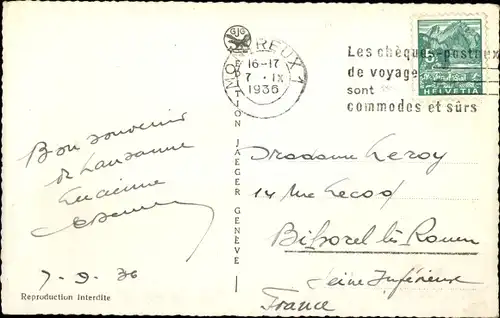 GJG
MONTREUX 1
16-17
7 · IX
1936
Les chèques-postaux
de voyage
sont
commodes et sûrs
5
HELVETIA
Bon souvenir
de Lausanne
Lucienne
7-9-36
Reproduction Interdite
EDITION JAEGER GENÈVE
Madame Leroy
14 Rue Lecocq
Bihorel lès Rouen
Seine Inférieure
France